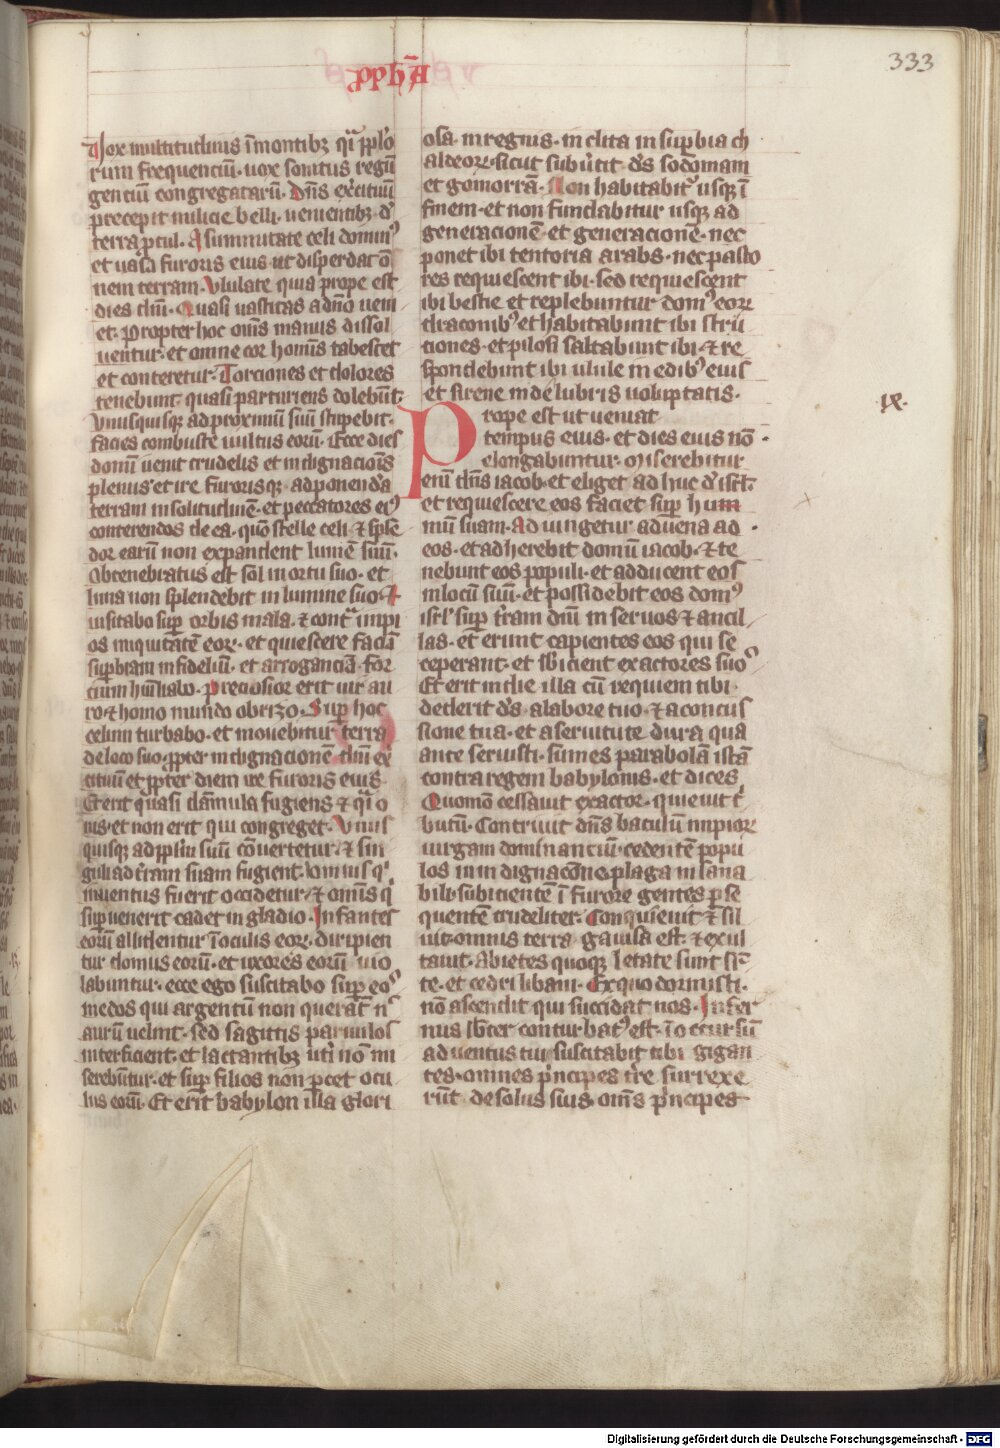 333
pph̄a
Vox multitudinis ī montibꝫ quͣ ppl'o
rum frequenciū. vox sonitus regū
gencium congregatarū. Dn̄s exͨitiuū
precepit milicie belli. uenientibꝫ dͤ
terra ꝓcul. A summitate celi dominꝰ
et uasa furoris eius ut disperdat o
nem terram. Ululate quia prope est
dies dn̄i. Quasi uastitas a dn̄o ueni
et. Propter hoc om̄s manus dissol
uentur. et omne cor hominis tabescet
et conteretur. Torciones et dolores
tenebunt. quasi parturiens dolebūt.
Vnusquisque ad proximū suū stupebit.
facies combuste uultus eorū. Ecce dies
domī uenit crudelis et indignacionis
plenus et ire furorisqꝫ ad ponendā
terram in solitudinē. et peccatores eiꝰ
conterendos de ea. quō stelle celi ⁊ splē
dor earū non expandent lumē suū.
Obtenebratus est sol in ortu suo. et
luna non splendebit in lumine suo. ⁊
uisitabo suꝑ orbis mala. ⁊ contͣ impi
os iniquitatē eorꝫ. et quiescere faciā
suꝑbiam infideliū. et arroganciā for
cium hūiliabo. Preciosior erit uir au
ro ⁊ homo mundo obrizo. Suꝑ hoc
celum turbabo. et mouebitur terra
de loco suo. ꝓpter indignacionē dn̄i ex̄
cituū et ꝓpter diem ire furoris eius
Et erit quasi dāmula fugiens ⁊ qͣi o
uis. et non erit qui congreget. Vnus
quisqꝫ ad ppl'm suū cōuertetur. ⁊ sin
guli ad trām suam fugient. omnis qͥ
inuentus fuerit occidetur. ⁊ om̄is qͥ
suꝑuenerit cadet in gladio. Infantes
eorū allidentur ī oculis eorꝫ. diripien
tur domus eorū. et uxores eorū uio
labuntur. ecce ego suscitabo suꝑ eos
medos qui argentū non querāt nͨ
aurū uelint. sed sagittis paruulos
interficient. et lactantibꝫ utīs nō mi
serebūtur. et suꝑ filios non ꝑcet ocu
lus eorū. Et erit babylon illa glori
osa. in regnis. inclita in suꝑbia ch
aldeorꝫ. sicut subūtit dꝰs sodomam
et gomorrā. Non habitabitᷣ usqꝫ ī
finem. et non fundabitur usqꝫ ad
generacionē et generacionē. nec
ponet ibi tentoria arabs. nec pasto
res requiescent ibi. sed requiescent
ibi bestie et replebuntur domꝰ eorꝫ
draconibꝰ et habitabunt ibi stru
ciones. et pilosi saltabunt ibi. ⁊ re
spondebunt ibi ulule in edibꝰ eius
et sirene in delubris uoluptatis.
IX.
Prope est ut ueniat
tempus eius. et dies eius nō
elongabuntur. Miserebitur
enī dn̄s iacob. et eliget adhuc dͤ isrl'.
et requiescere eos faciet suꝑ hum
mū suam. Adiungetur aduena ad
eos. et adherebit domui iacob. ⁊ te
nebunt eos populi. et adducent eos
in locū suū. et possidebit eos domꝰ
isrl' suꝑ trām dn̄i in seruos ⁊ ancil
las. et erunt capientes eos qui se
ceperant. et sb̄icient exactores suos
Et erit in die illa cū requiem tibi
dederit dꝰs a labore tuo. ⁊ a concus
sione tua. et a seruitute dura qua
ante seruisti. sumes parabolā istā
contra regem babylonis. et dices
Quomō cessauit exactor. quieuit tͥ
butū. Contriuit dn̄s baculū impiorꝫ
uirgam dominanciū. cedentē popu
los in indignacōne. plaga insana
bili. subicientē ī furore gentes ꝑse
quentē crudeliter. Conquieuit ⁊ sil
uit omnis terra. gauisa est. ⁊ exul
tauit. Abietes quoqꝫ letate sunt sr̄
te. et cedri libani. Ex quo dormisti.
nō ascendit qui succidat nos. Infer
nus sb̄ter conturbatꝰ est. ī occursū
aduentus tui suscitabit tibi gigan
tes. omnes pͥncipes tr̄e surrexe
rūt de solus suis om̄s pͥncipes
Digitalisierung gefördert durch die Deutsche Forschungsgemeinschaft - DFG